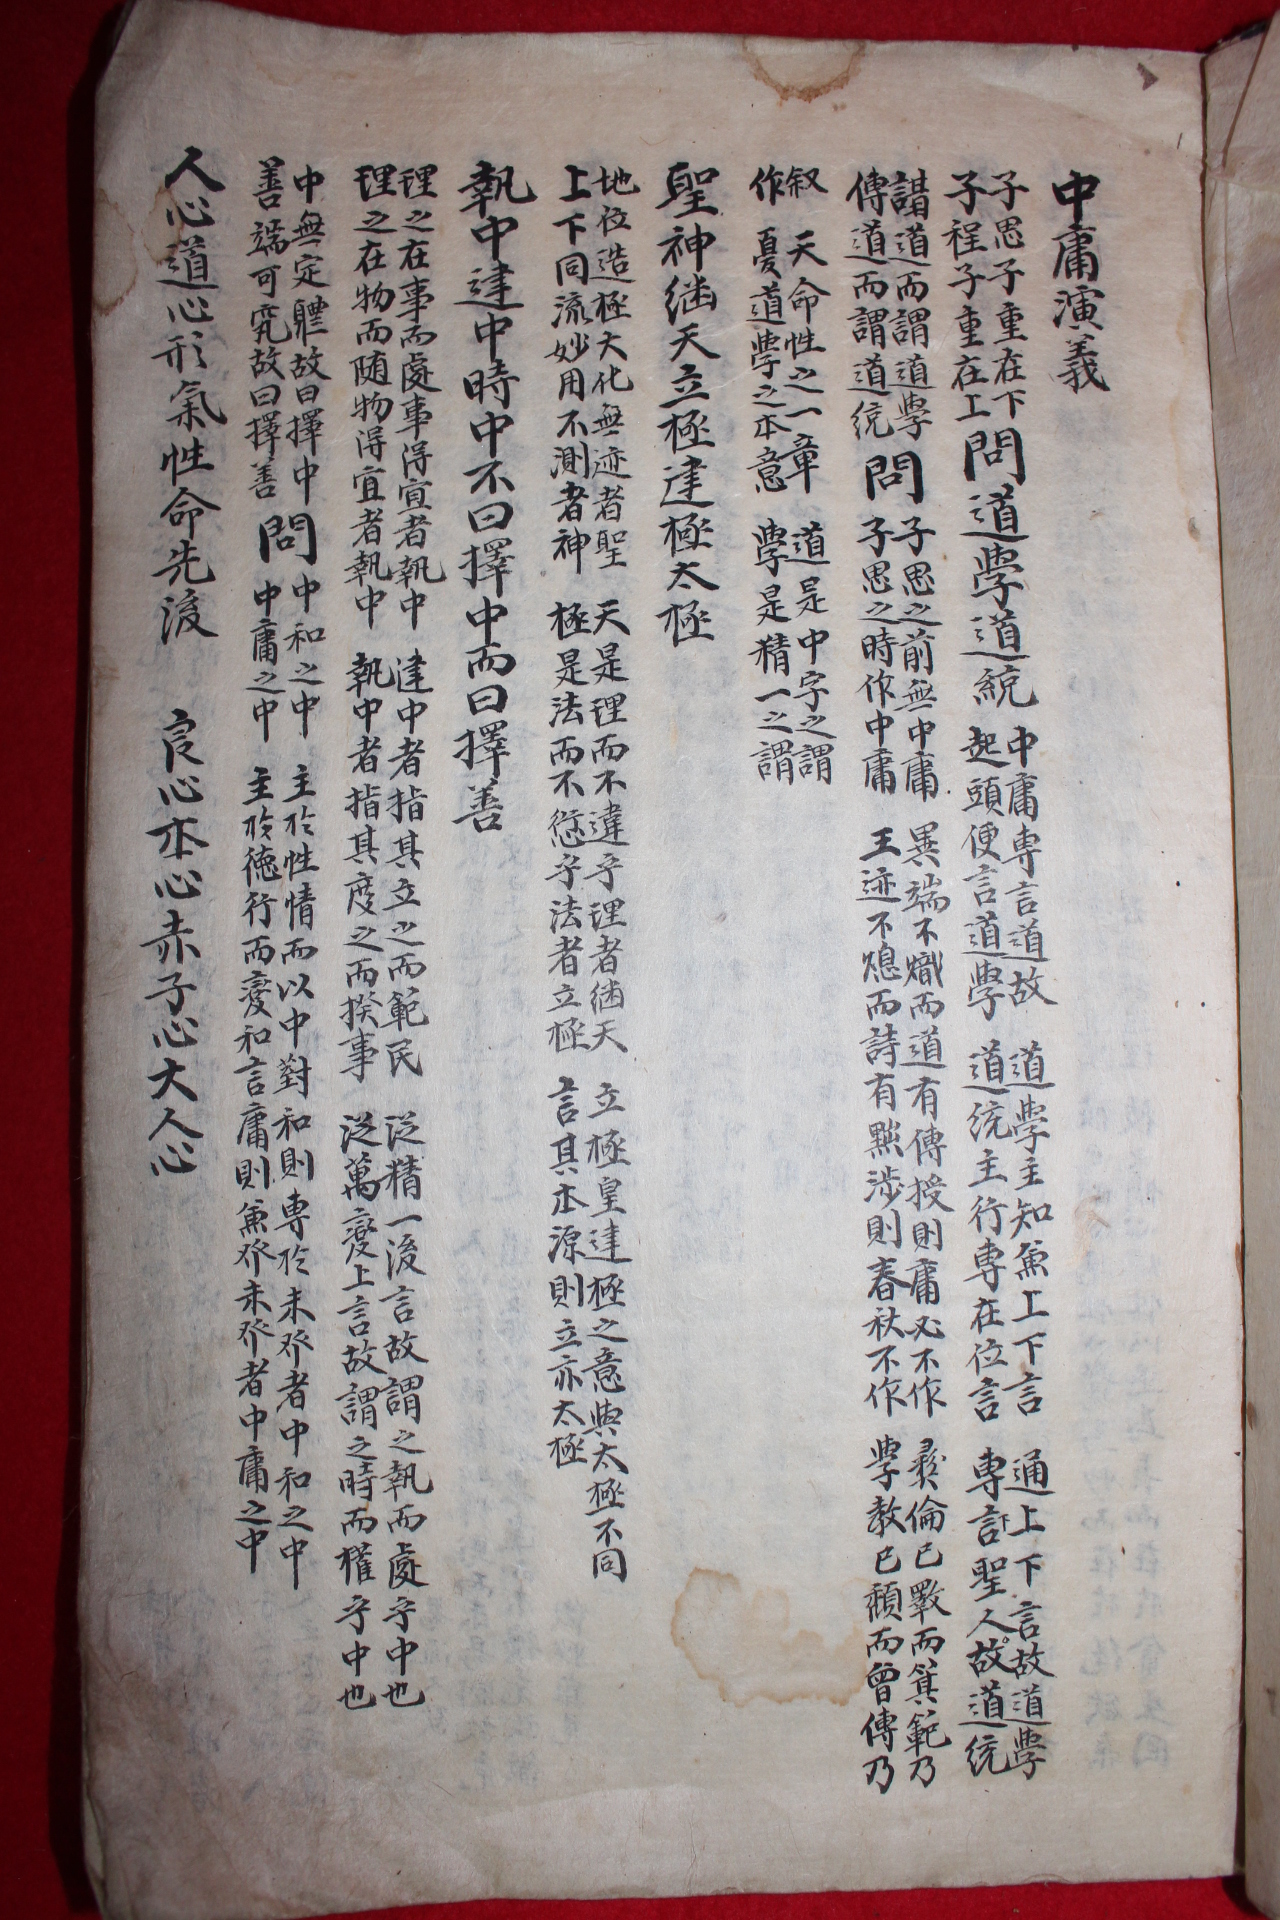 中庸演義
子思子重在下子程子重在上問道學道統中庸專言道故起頭便言道學道學主知兼上下言道統主行專在位言通上下言故道學專言聖人故道統
講道而謂道學傳道而謂道統問子思之前無中庸子思之時作中庸異端不熾而道有傳授則庸必不作王迹不熄而詩有黜陟則春秋不作彛倫已斁而箕範乃學教已頹而曾傳乃
叙作天命性之一章憂道學之本意道是中字之謂學是精一之謂
聖神継天立極建極太極
地位造極大化無迹者聖上下同流妙用不測者神天是理而不違乎理者継天極是法而不愆乎法者立極立極皇建極之意與太極不同言其本源則立亦太極
執中建中時中不曰擇中而曰擇善
理之在事而處事得宜者執中理之在物而随物得宜者執中建中者指其立之而範民執中者指其度之而揆事泛精一後言故謂之執而處乎中也泛萬變上言故謂之時而權乎中也
中無定體故曰擇中善端可究故曰擇善問中和之中中庸之中主於性情而以中對和則專於未發者中和之中主於德行而變和言庸則兼發未發者中庸之中
人心道心形氣性命先後　良心本心赤子心大人心